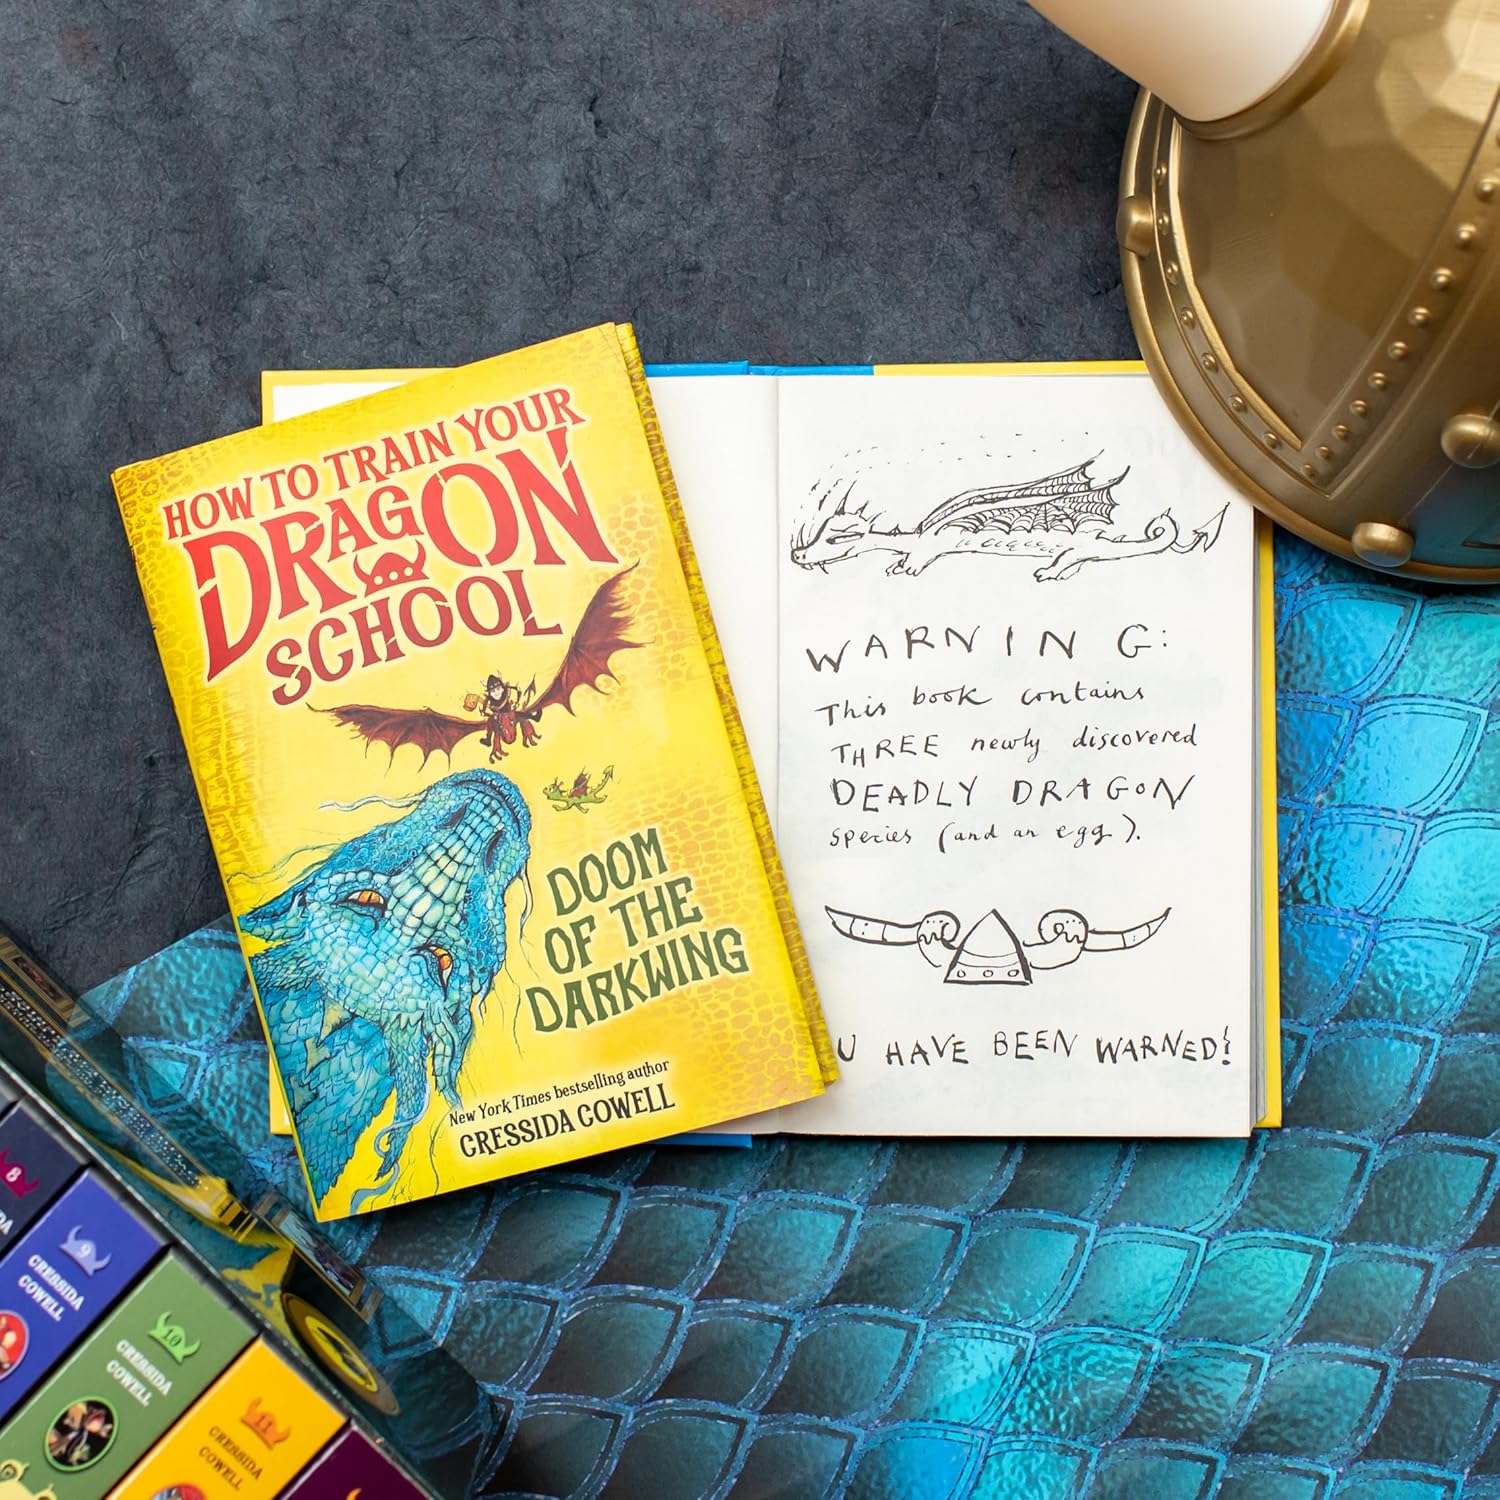 HOW TO TRAIN YOUR
DRAGON
SCHOOL
DOOM
OF THE
DARKWING
New York Times bestselling author
CRESSIDA COWELL
WARNING:
This book contains
THREE newly discovered
DEADLY DRAGON
species (and an egg).
U HAVE BEEN WARNED!
8
9
CRESSIDA
COWELL
10
CRESSIDA
COWELL
11
CRESSIDA
COWELL